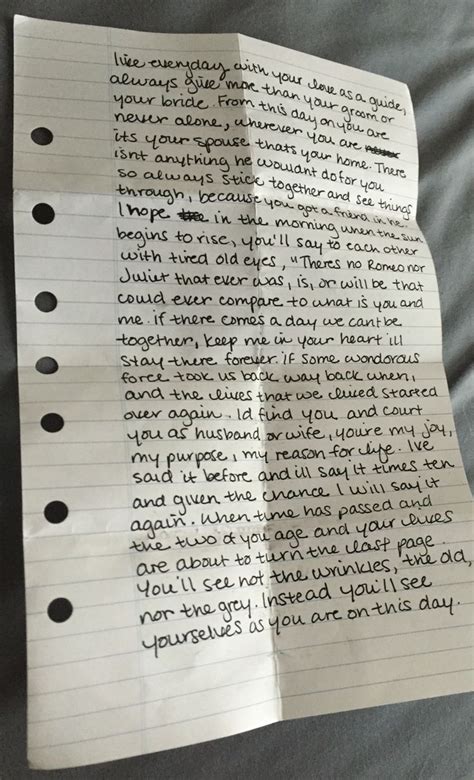 live everyday with your love as a guide,
always give more than your groom or
your bride. From this day on you are
never alone, wherever you are
its your spouse thats your home. There
isnt anything he wouldnt do for you
so always stick together and see things
through, because you got a friend in he.
I hope in the morning when the sun
begins to rise, you'll say to each other
with tired old eyes, "Theres no Romeo nor
Juliet that ever was, is, or will be that
could ever compare to what is you and
me. if there comes a day we cant be
together, keep me in your heart ill
stay there forever. if some wondorous
force took us back way back when,
and the lives that we lived started
over again. Id find you and court
you as husband or wife, youre my joy,
my purpose, my reason for life. Ive
said it before and ill say it times ten
and given the chance I will say it
again. When time has passed and
the two of you age and your lives
are about to turn the last page.
You'll see not the wrinkles, the old,
nor the grey. Instead you'll see
yourselves as you are on this day.